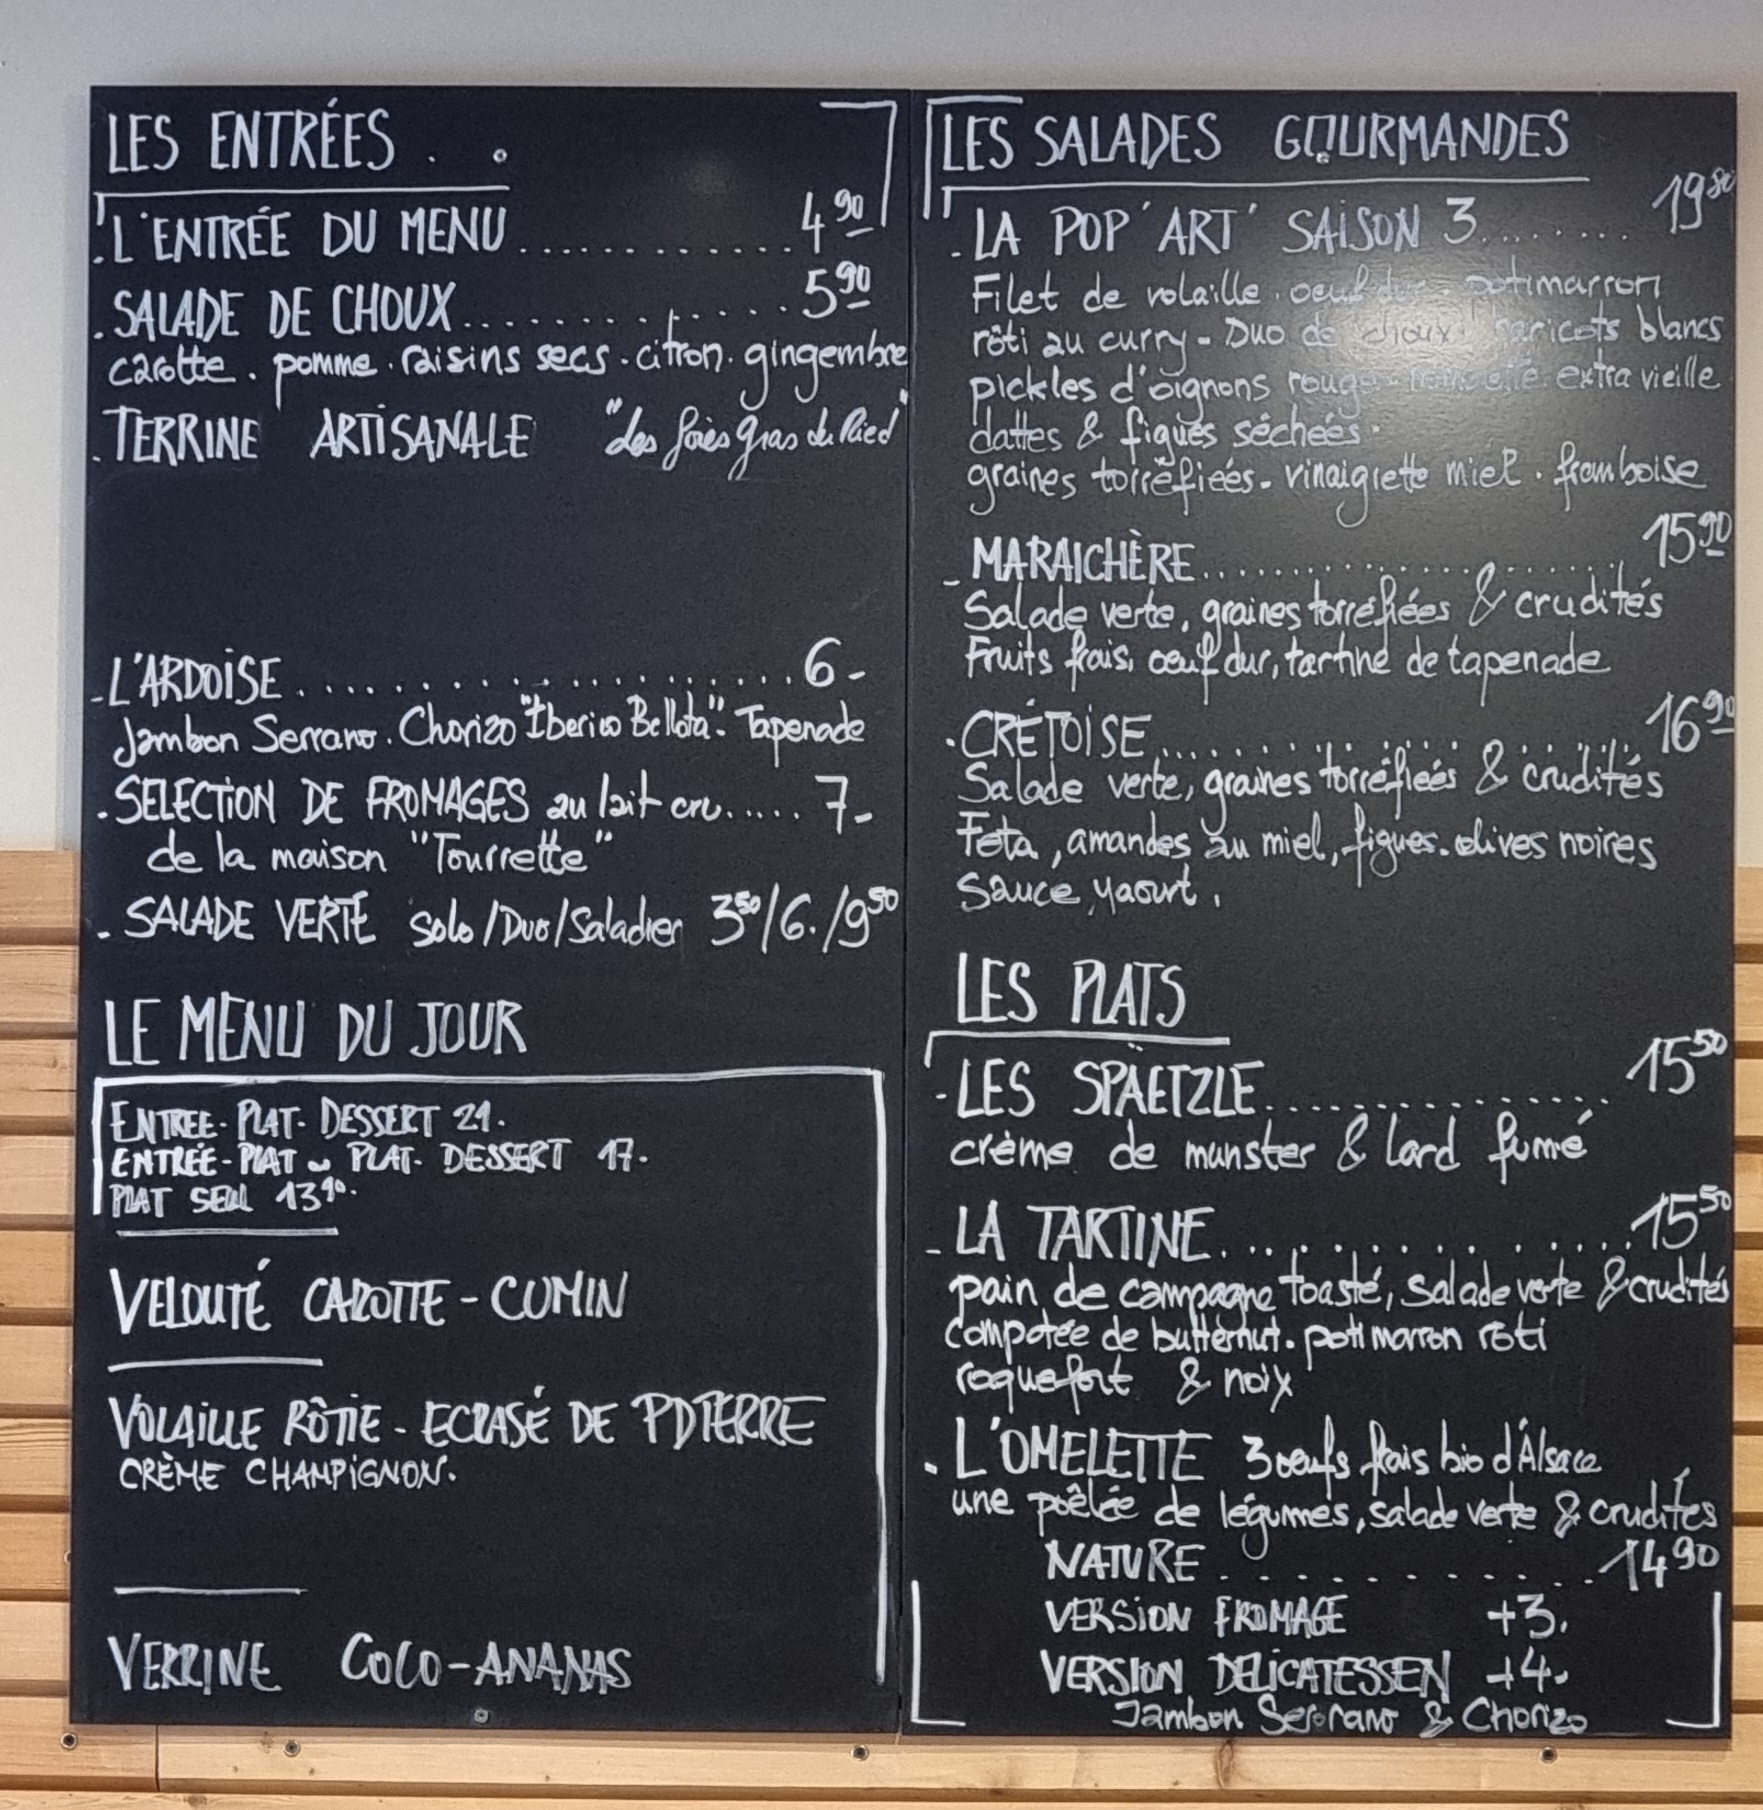 LES ENTRÉES . .
. L'ENTRÉE DU MENU ............. 4 90
. SALADE DE CHOUX ............. 5 90
carotte . pomme . raisins secs . citron . gingembre
. TERRINE ARTISANALE "des foies gras du Ried"
- L'ARDOISE ..................... 6 -
Jambon Serrano . Chorizo "Iberico Bellota" . Tapenade
. SELECTION DE FROMAGES au lait cru ..... 7 -
de la maison "Tourrette"
- SALADE VERTE Solo / Duo / Saladier 3 50 / 6. / 9 50
LE MENU DU JOUR
ENTREE - PLAT - DESSERT 21 .
ENTRÉE - PLAT ou PLAT - DESSERT 17 .
PLAT SEUL 13 90 .
VELOUTÉ CAROTTE - CUMIN
VOLAILLE RÔTIE - ECRASÉ DE PDTERRE
CRÈME CHAMPIGNON.
VERRINE COCO - ANANAS
LES SALADES GOURMANDES
. LA POP'ART' SAISON 3 ........ 19 80
Filet de volaille . oeuf dur . potimarron
rôti au curry - Duo de choux . haricots blancs
pickles d'oignons rouge - extra vieille
dattes & figues séchées .
graines torréfiées - vinaigrette miel . framboise
- MARAICHÈRE ..................... 15 90
Salade verte, graines torréfiées & crudités
Fruits frais, oeuf dur, tartine de tapenade
. CRÉTOISE ..................... 16 90
Salade verte, graines torréfiées & crudités
Feta, amandes au miel, figues - olives noires
Sauce yaourt .
LES PLATS
- LES SPÄETZLE ............... 15 50
crème de munster & lard fumé
- LA TARTINE ............... 15 50
pain de campagne toasté, salade verte & crudités
compotée de butternut . potimarron rôti
roquefort & noix
. L'OMELETTE 3 oeufs frais bio d'Alsace
une poêlée de légumes, salade verte & crudités
NATURE ............. 14 90
VERSION FROMAGE +3.
VERSION DELICATESSEN +4.
Jambon Serrano & Chorizo